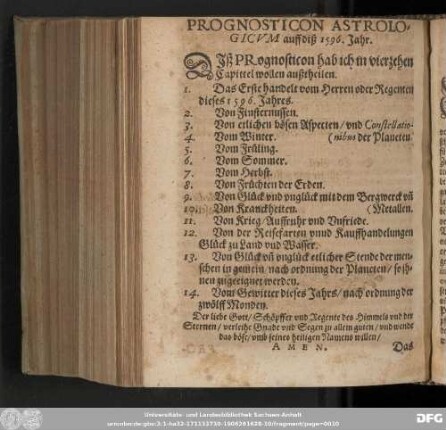 PROGNOSTICON ASTROLO-
GICVM auffdiß 1596. Jahr.
DIß PRognosticon hab ich in vierzehen
Capittel wollen außtheilen.
1. Das Erste handelt vom Herren oder Regenten
dieses 1596. Jahres.
2. Von Finsternussen.
3. Von etlichen bösen Aspecten/ vnd Constellatio-
4. Vom Winter. (nibus der Planeten.
5. Vom Früling.
6. Vom Sommer.
7. Vom Herbst.
8. Von Früchten der Erden.
9. Von Glück vnd vnglück mit dem Bergwerck vñ
10. Von Kranckheiten. (Metallen.
11. Von Krieg/ Auffruhr vnd Vnfriede.
12. Von der Reisefarten vnnd Kauffhandelungen
Glück zu Land vnd Wasser.
13. Von Glück vñ vnglück etlicher Stende der men-
schen in gemein/ nach ordnung der Planeten/ so jh-
nen zugeeignet werden.
14. Vom Gewitter dieses Jahrs/ nach ordnung der
zwölff Monden.
Der liebe Gott/ Schöpffer vnd Regente des Himmels vnd der
Sternen/ verleihe Gnade vnd Segen zu allem guten/ vnd wende
das böse/ vmb seines heiligen Namens willen/
AMEN. Das
Universitäts- und Landesbibliothek Sachsen-Anhalt
DFG